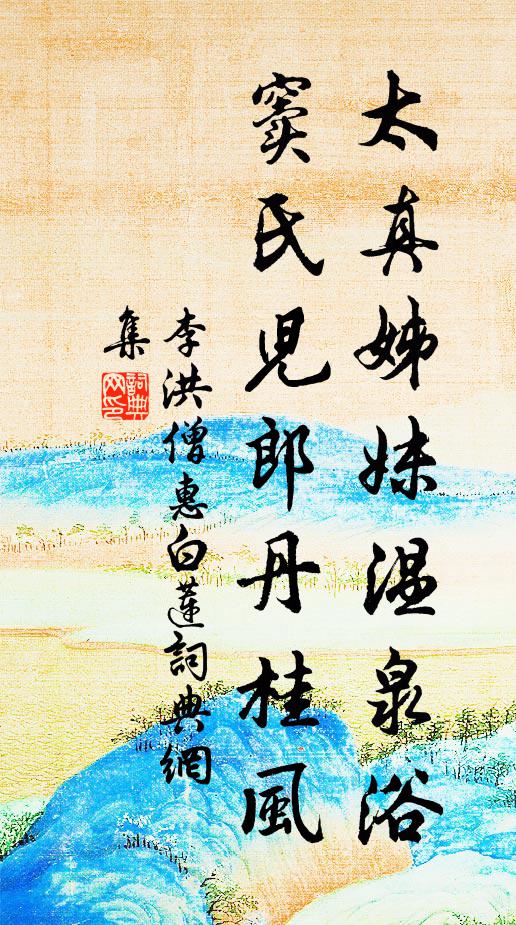 太真姊妹温泉浴
窦氏児郎丹桂風
李洪僧惠白蓮詞典網
集
詞典网印